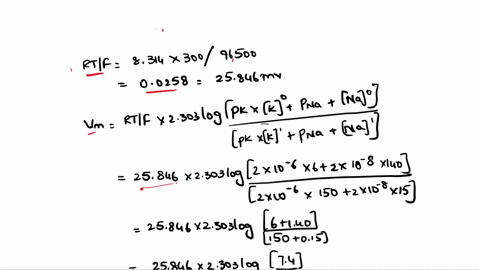 RT/F = 8.314 × 300 / 96,500
= 0.0258 = 25.846 mv
Vm = RT/F × 2.303 log [PK × [K]⁰ + PNa + [Na]⁰]
[PK × [K]' + PNa + [Na]']
= 25.846 × 2.303 log [2 × 10⁻⁶ × 6 + 2 × 10⁻⁸ × 140]
[2 × 10⁻⁶ × 150 + 2 × 10⁻⁸ × 15]
= 25.846 × 2.303 log [6 + 1.40]
[150 + 0.15]
= 25.846 × 2.303 log [7.4]